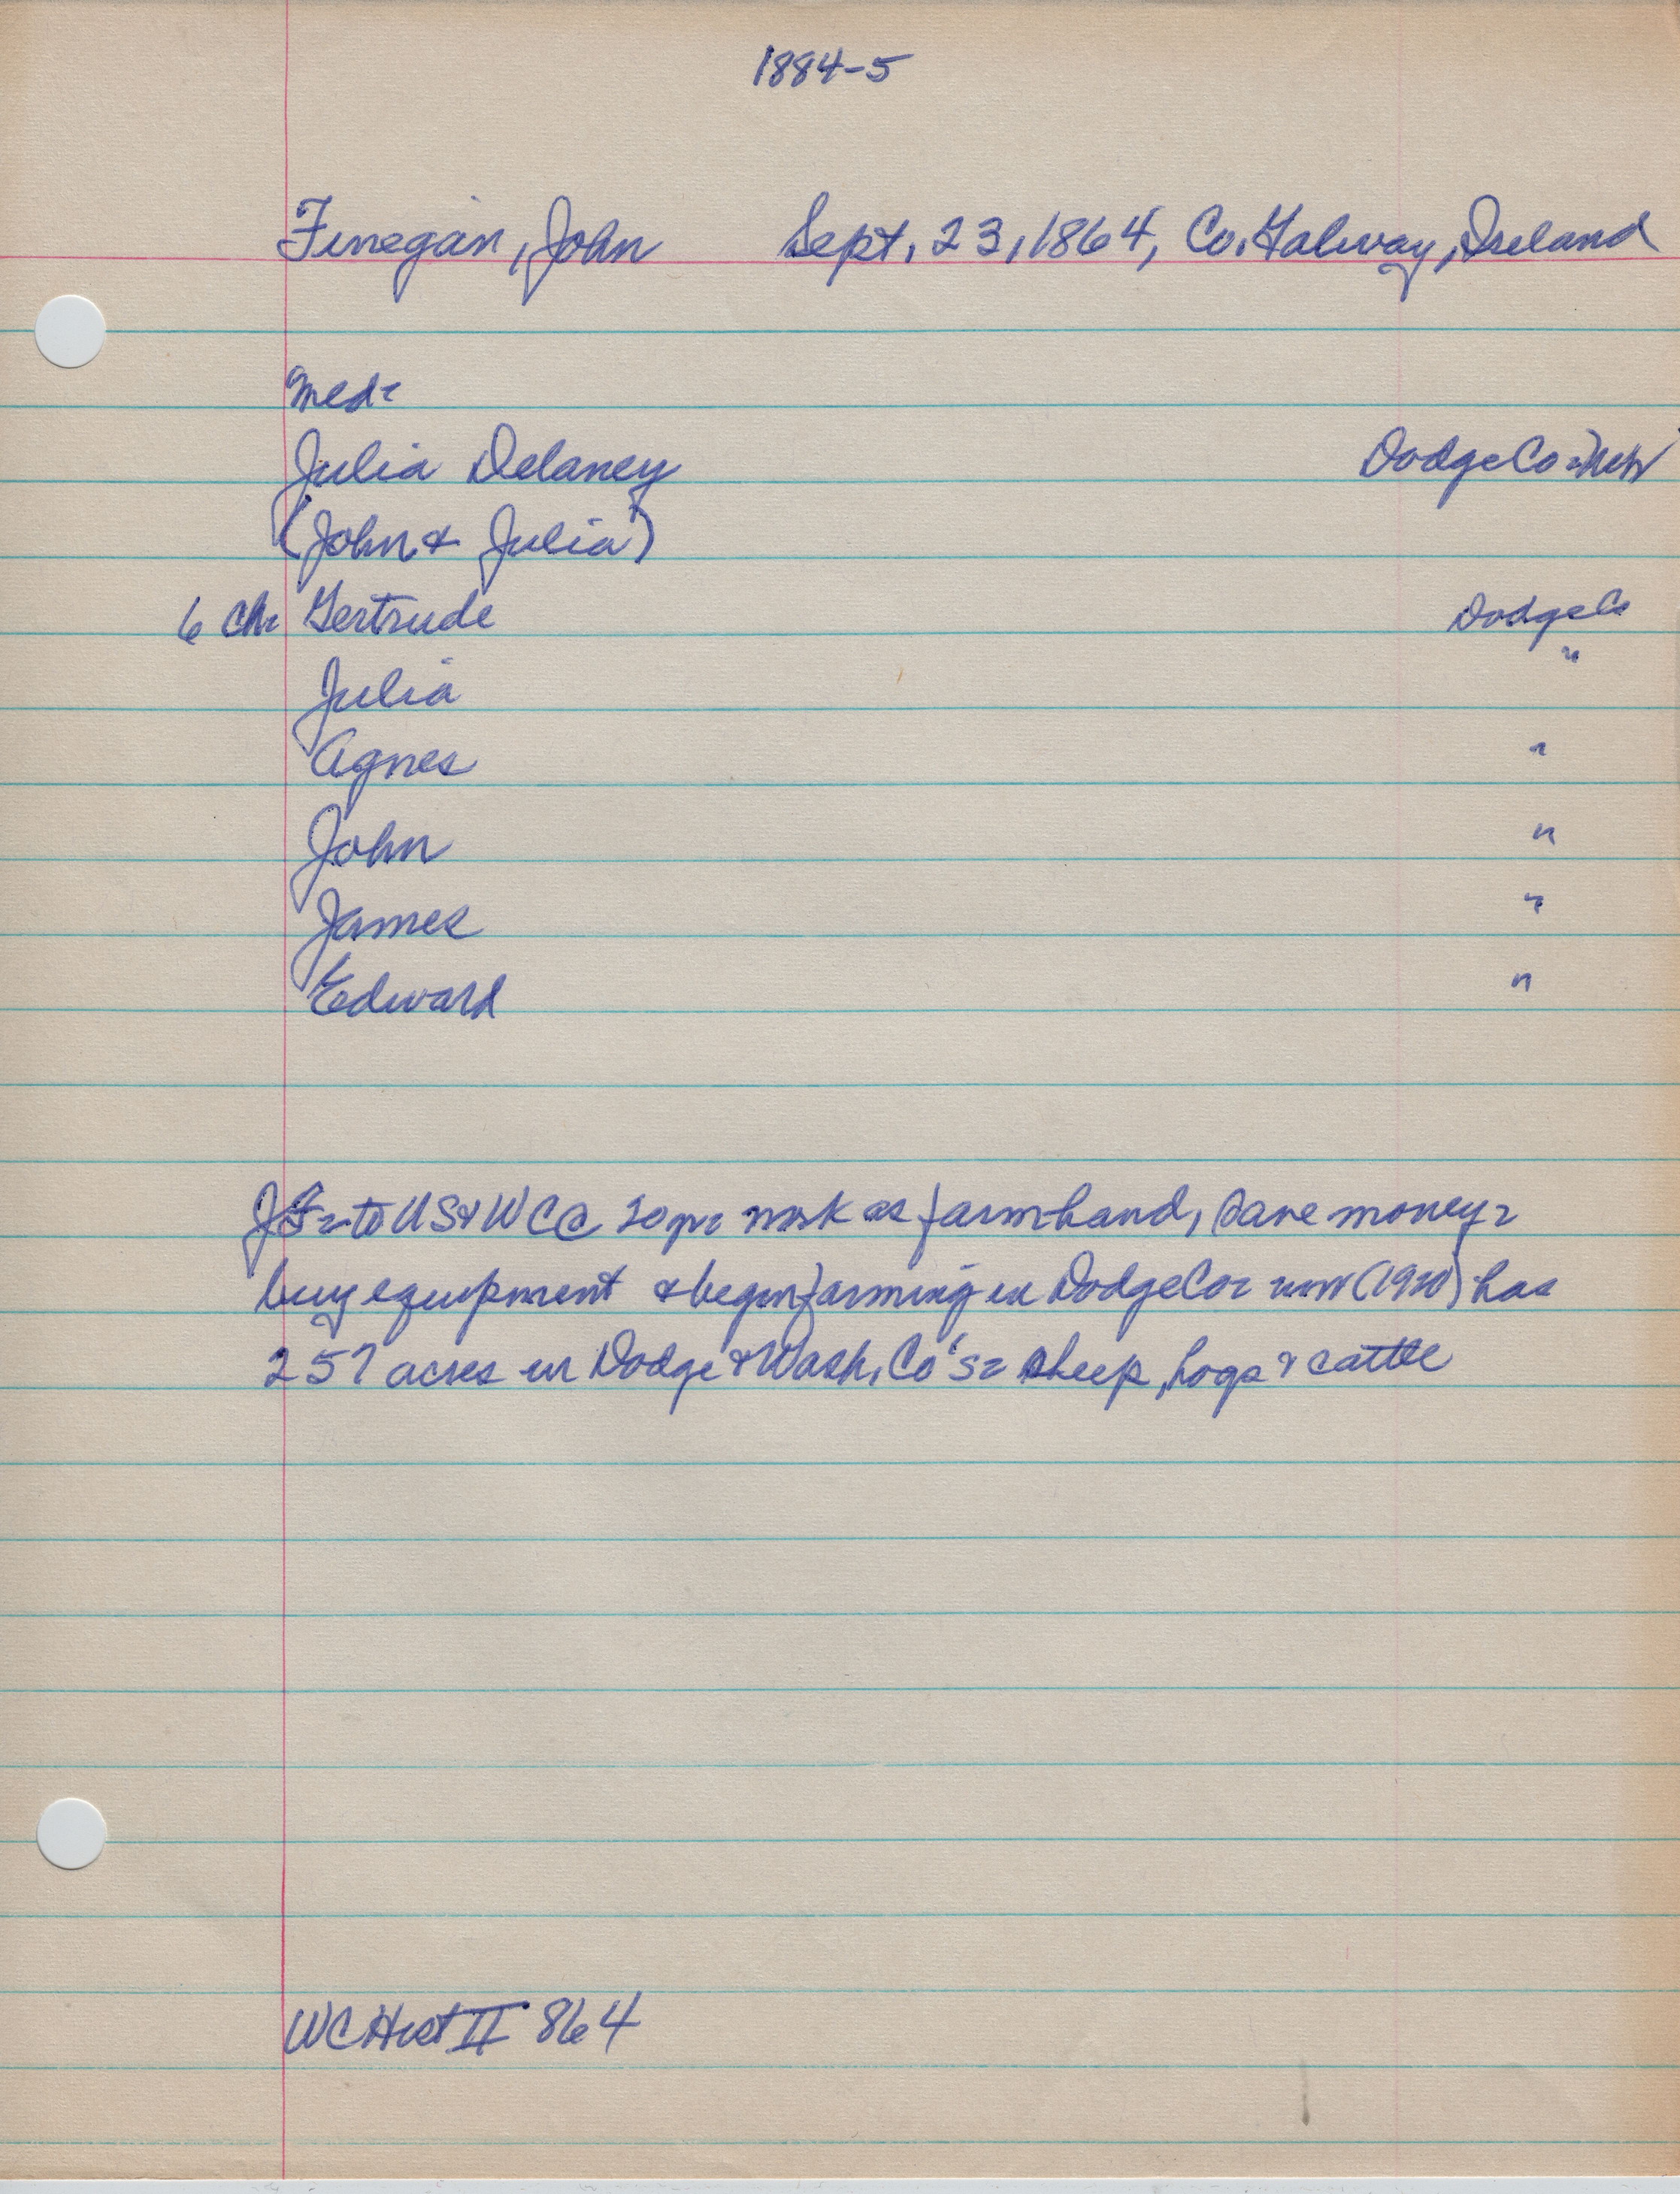 1884-5
Finegan, John Sept. 23, 1864, Co. Galway, Ireland
med-
Julia Delaney Dodge Co-Neb
(John & Julia)
6 Ch- Gertrude Dodge Co
Julia "
Agnes "
John "
James "
Edward "
JF- to US & WC @ 20 yr- work as farm hand, save money-
buy equipment & begin farming in Dodge Co- now (1920) has
257 acres in Dodge & Wash. Co's- sheep, hogs & cattle
WC Hist II 864